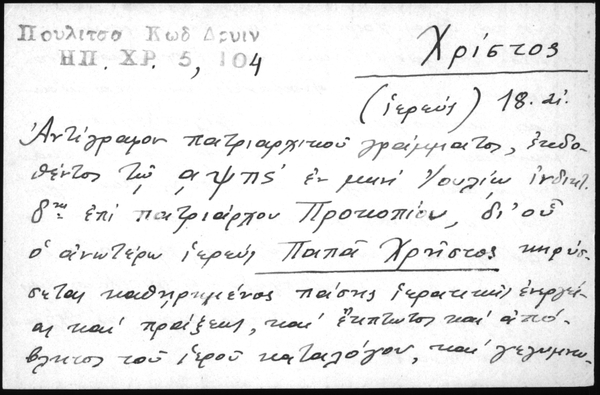 Πουλιτσα Κωδ Δρυιν
ΗΠ. ΧΡ. 5, 104
Χρίστος
(ἱερεύς) 18. αἰ.
Ἀντίγραφον πατριαρχικοῦ γράμματος, ἐκδο-
θέντος τῷ ͵αψπς' ἐν μηνί Ἰουλίῳ ἰνδικτ.
δης ἐπί πατριάρχου Προκοπίου, δι' οὗ
ὁ ἀνωτέρω ἱερεύς Παπᾶ Χρῆστος κηρύσ-
σεται καθηρημένος πάσης ἱερατικῆς ἐνεργεί-
ας καί πράξεως, καί ἔκπτωτος καί ἀπό-
βλητος τοῦ ἱεροῦ καταλόγου, καί γεγυμνω-